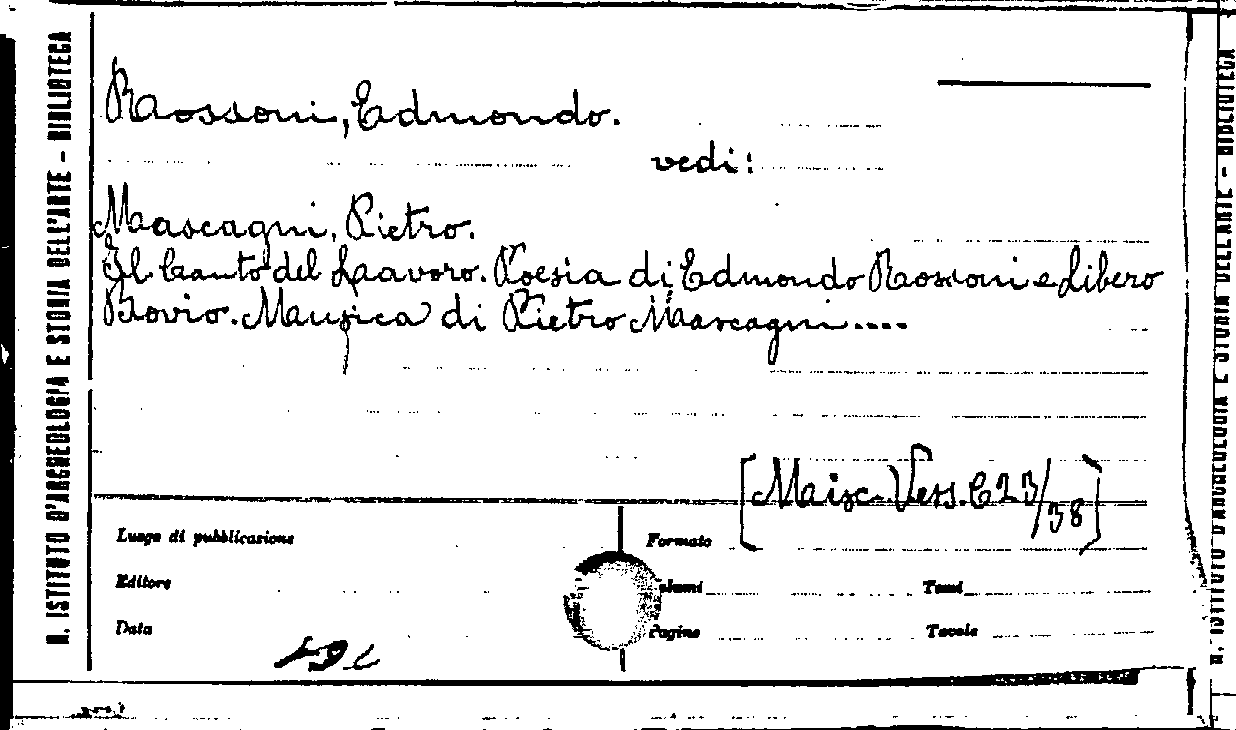 R. ISTITUTO D'ARCHEOLOGIA E STORIA DELL'ARTE - BIBLIOTECA
Rossoni, Edmondo.
vedi:
Mascagni, Pietro.
Il Canto del Lavoro. Poesia di Edmondo Rossoni e Libero
Bovio. Musica di Pietro Mascagni....
[Misc. Vess. C 23/38]
Luogo di pubblicazione
Formato
Editore
Tomi
Data
Pagine
Tavole
R. ISTITUTO D'ARCHEOLOGIA E STORIA DELL'ARTE - BIBLIOTECA